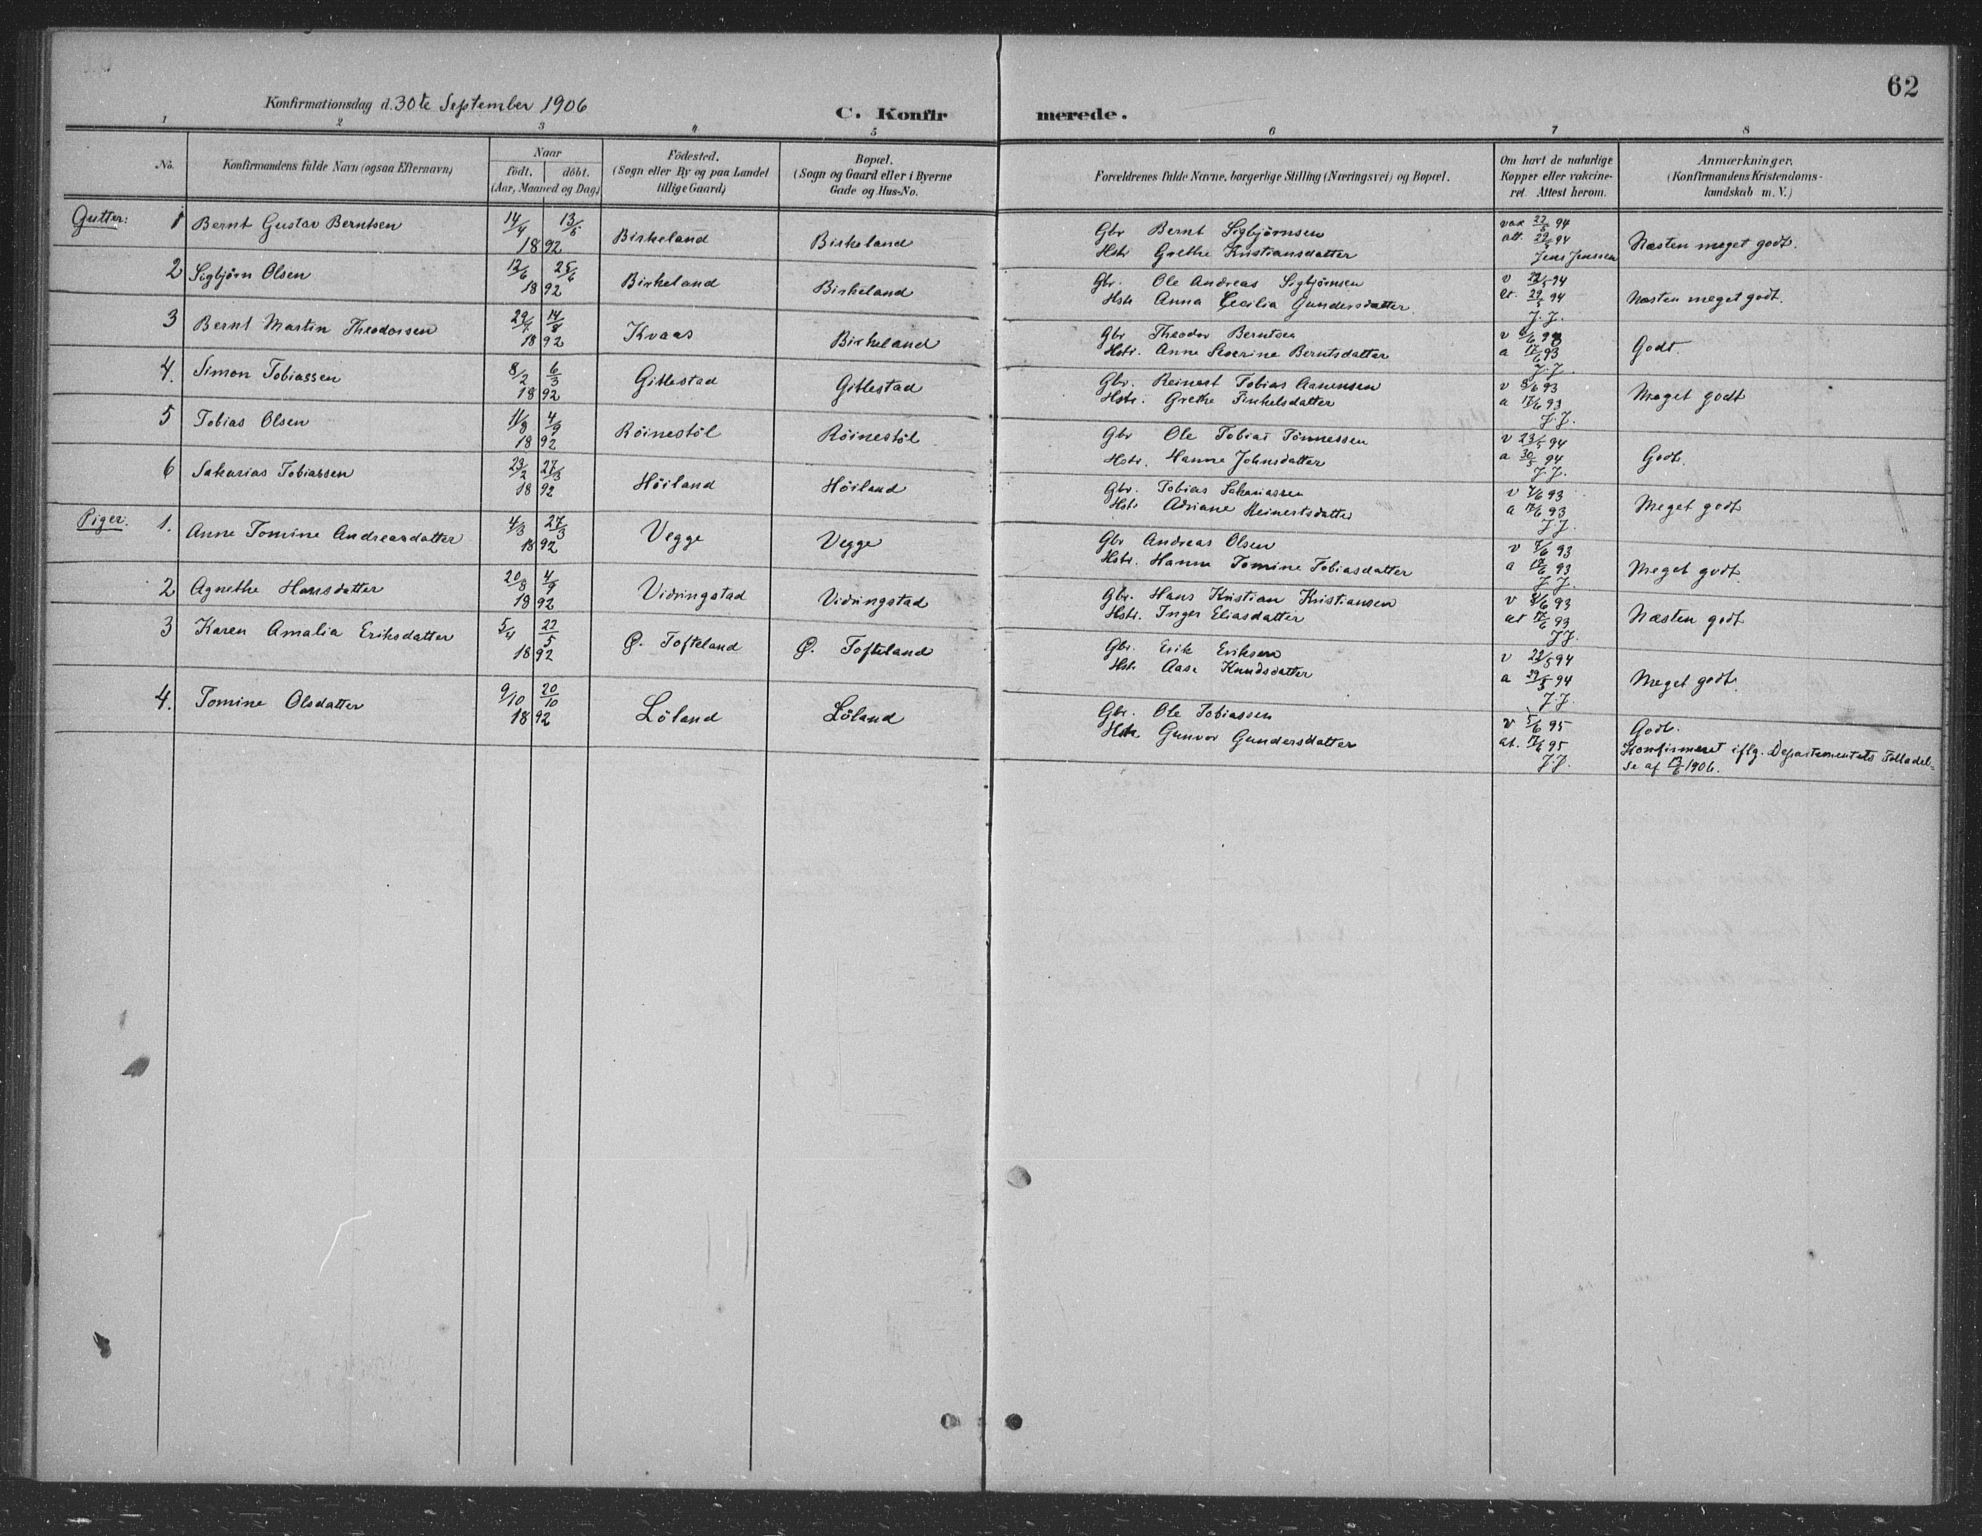 62
Konfirmationsdag d. 30te September 1906
C. Konfirmerede.
1 2 3 4 5 6 7 8
No. Konfirmandens fulde Navn (ogsaa Efternavn) Naar födt. döbt. (Aar, Maaned og Dag) Födested. (Sogn eller By og paa Landet tillige Gaard) Bopæl. (Sogn og Gaard eller i Byerne Gade og Hus-No. Forældrenes fulde Navne, borgerlige Stilling (Næringsvei) og Bopæl. Om havt de naturlige Kopper eller vakcineret. Attest herom. Anmærkninger. (Konfirmandens Kristendomskundskab m. V.)
Gutter: 1 Bernt Gustav Berntsen 14/4 13/6 1892 Birkeland Birkeland Gbr Bernt Sigbjørnsen vax 22/5 94
Hstr Grethe Kristiansdatter att. 29/5 94 Jens Jenssen Næsten meget godt.
2 Sigbjörn Olsen 12/6 25/6 1892 Birkeland Birkeland Gbr. Ole Andreas Sigbjörnsen v 22/5 94
Hstr Anna Cecilia Gundersdatter at. 29/5 94 J. J. Næsten meget godt.
3 Bernt Martin Theodorsen 29/7 14/8 1892 Kvaas Birkeland Gbr Theodor Berntsen
Hstr. Anne Severine Berntsdatter a 17/6 93 J. J. Godt.
4. Simon Tobiassen 8/2 6/3 1892 Gitlestad Gitlestad Gbr. Reinert Tobias Aanensen v 8/6 93
Hstr. Grethe Tinkelsdatter a 17/6 93 J. J. Meget godt
5 Tobias Olsen 11/8 4/9 1892 Röinestöl Röinestöl Gbr Ole Tobias Tönnessen v 23/5 94
Hstr. Hanne Johnsdatter a 30/5 94 J. J. Godt.
6 Sakarias Tobiassen 23/2 27/3 1892 Höiland Höiland Gbr. Tobias Sakariassen v 7/6 93
Hstr Adriane Reinertsdatter a 17/6 93 J. J. Meget godt
Piger. 1. Anne Tomine Andreasdatter 4/3 27/3 1892 Vegge Vegge Gbr Andreas Olsen v 7/6 93
Hstr. Hanne Tomine Tobiasdatter a 17/6 93 J. J. Meget godt.
2 Agnethe Hansdatter 20/8 4/9 1892 Vidringstad Vidringstad Gbr. Hans Kristian Kristiansen v 8/6 93
Hstr. Inger Eliasdatter at 17/6 93 J. J. Næsten godt
3 Karen Amalia Eriksdatter 5/4 22/5 1892 Ø. Tofteland Ø. Tofteland Gbr. Erik Eriksen v 22/5 94
Hstr Aase Knudsdatter a 29/5 94 J. J. Meget godt.
4. Tomine Olsdatter 9/10 20/10 1892 Löland Löland Gbr. Ole Tobiassen v 5/6 95 Godt.
Hstr Gunvor Gundersdatter at. 17/6 95 J. J. Konfirmeret iflg. Departementets Tilladel-
se af 1906.